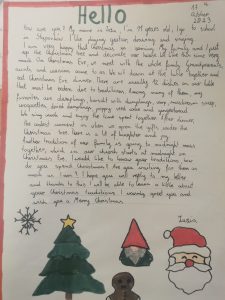 Hello
17. 11
2023
How are you? My name is I'm 14 years old, I go to school
in I like playing guitar, drawing and singing.
I am very happy that Christmas is coming. My family and I put
up the Christmas tree and decorate our house with lots of love. Very
much like Christmas Eve, we meet with the whole family: Grandparents,
aunts and cousins come to us. We sit down at the table together and
eat Christmas Eve dinner. There are usually 12 dishes on our table
that must be eaten due to tradition. Among many of them my
favorites are dumplings, borscht with dumplings, mushroom soup,
poppy seed cake and gingerbread.
We sing and enjoy the time spent together. After dinner,
the moment is when we open the gifts under the
Christmas tree. There is a lot of laughter and joy.
Another tradition of our family is going to midnight mass
together, which in our church starts at midnight on
Christmas Eve. I would like to know your traditions, how
do you spend Christmas? Are you waiting for them as
much as I am? I hope you will reply to my letter
and thanks to this I will be able to learn a little about
your Christmas traditions. I warmly greet you and
wish you a Merry Christmas.